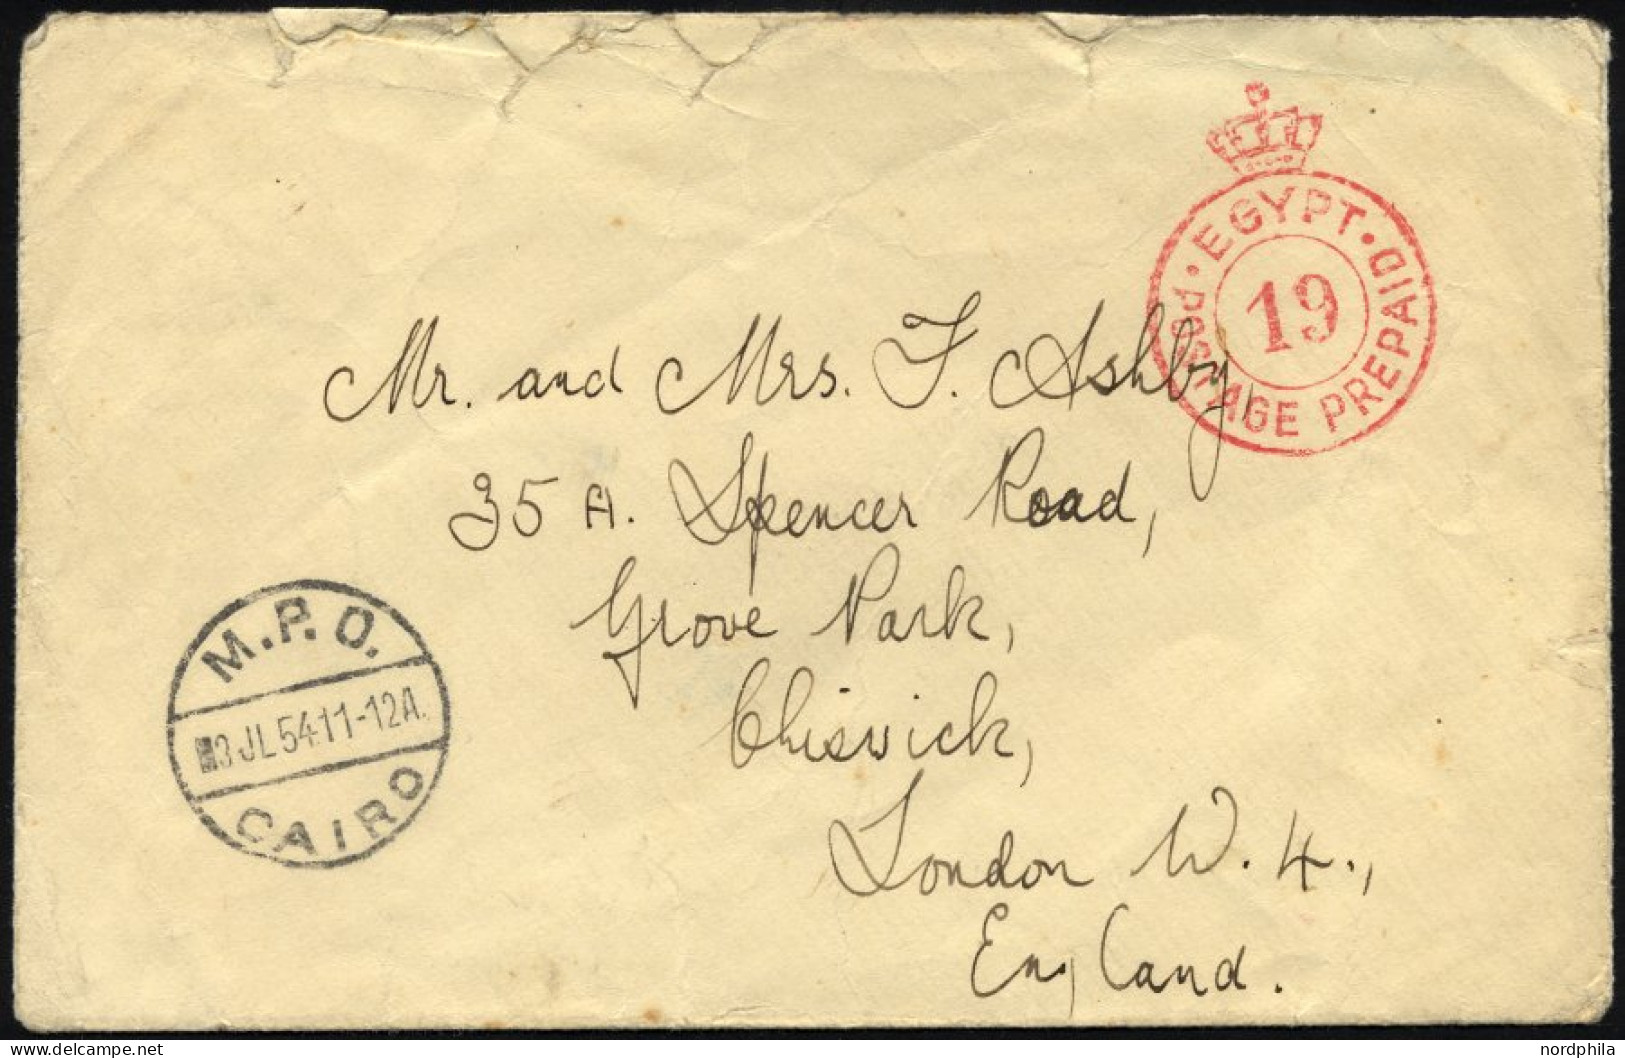 · EGYPT ·
POSTAGE PREPAID
19
Mr. and Mrs. F. Ashby,
35 A. Spencer Road,
Grove Park,
Chiswick,
London W. 4.,
England.
M.P.O.
3 JL 54 11-12A.
CAIRO
delcampe.net
nordphila